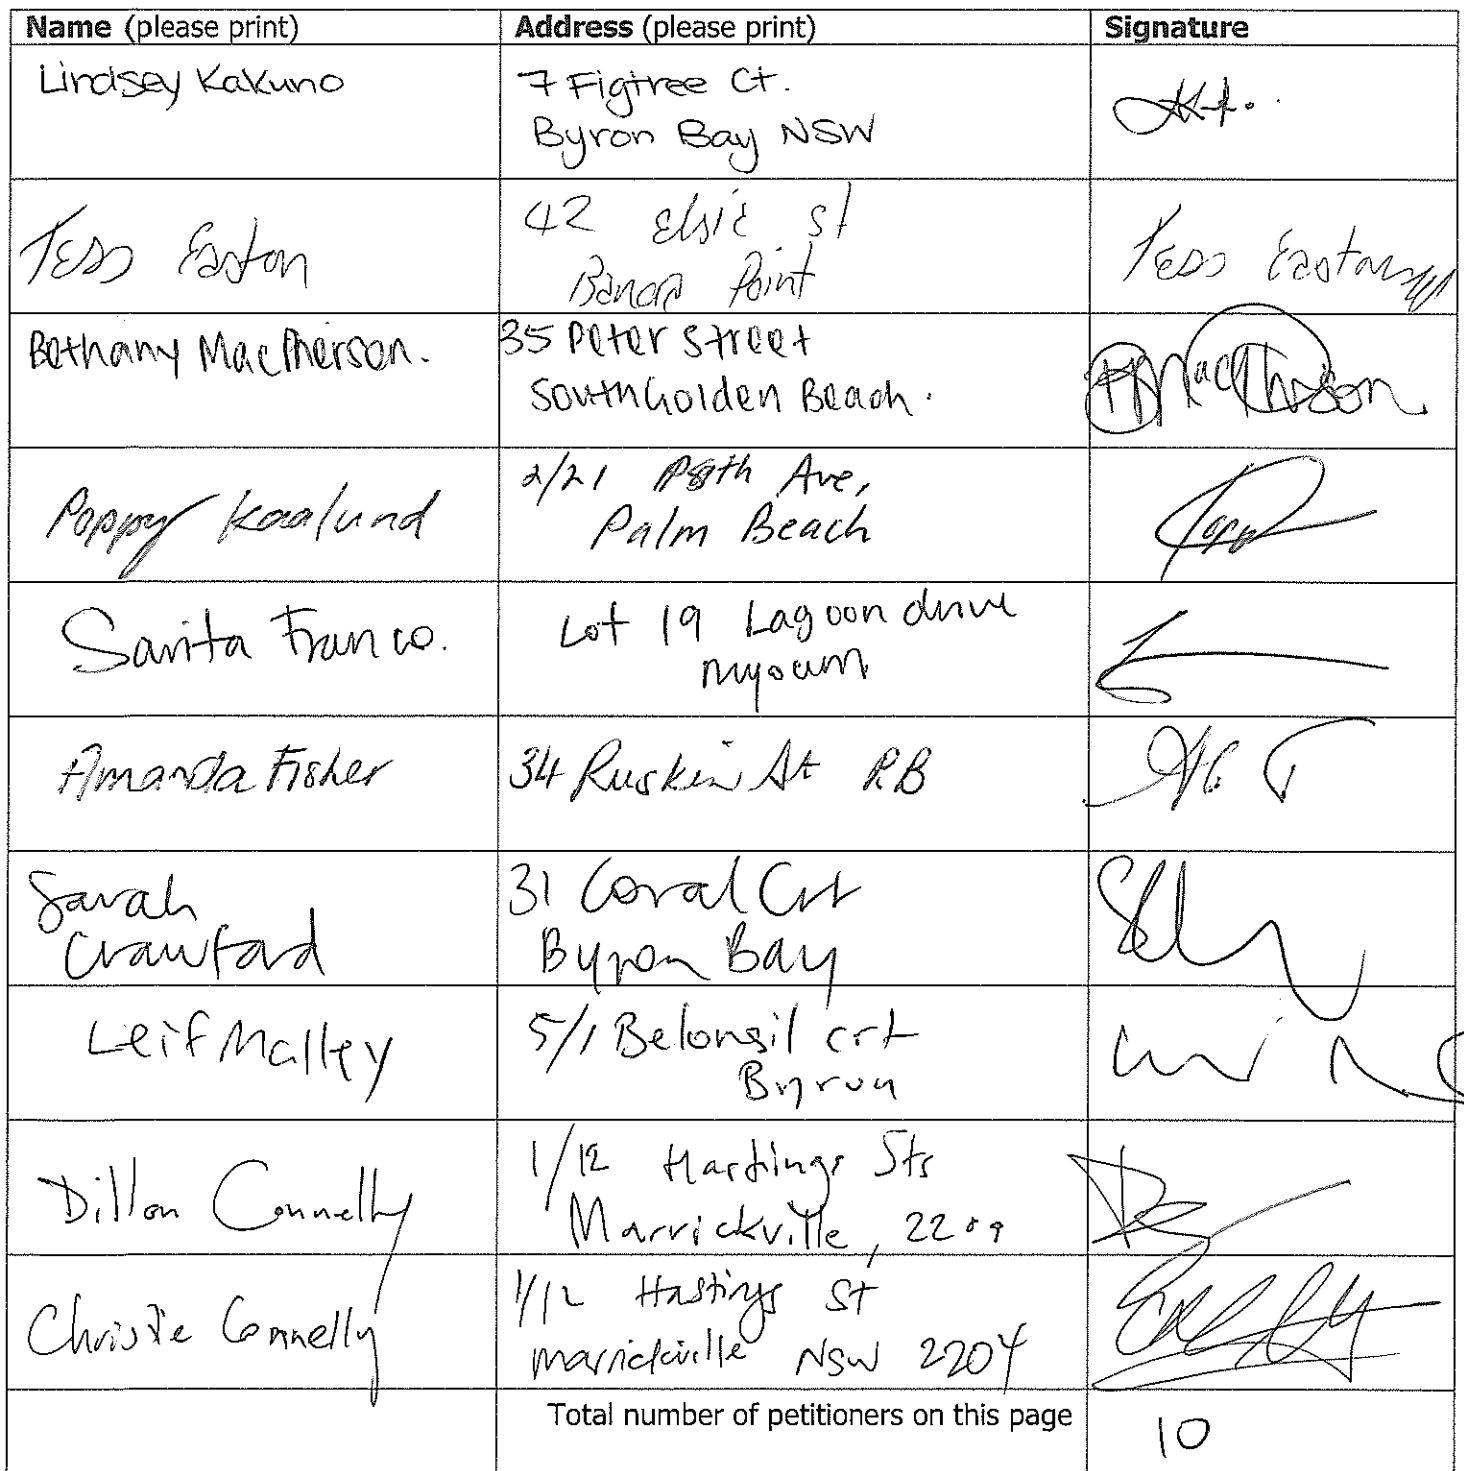 Name (please print) Address (please print) Signature
Lindsey Kakuno 7 Figtree Ct.
Byron Bay NSW
Tess Easton 42 Elsie St Tess Easton
Banora Point
Bethany MacPherson. 35 Peter Street
South Golden Beach. MacPherson
Poppy Kaalund 2/21 Ave,
Palm Beach
Sarita Franco. Lot 19 Lagoon drive
myocum
Amanda Fisher 34 Ruskin St
Sarah 31 Coral Crt
Crawford Byron Bay
Leif Malley 5/1 Belongil crt
Byron
Dillon Connelly 1/12 Hastings
Marrickville,
Christie Connelly 1/12 Hastings St
marrickville NSW 2204
Total number of petitioners on this page 10